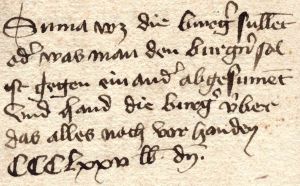 Suma wz die burg̾ sullet
od̾ was man den burg̾n sol
ist gegen ein and̾ abgesumet
und hand die burg̾ vber
das alles noch vor handen
CCCLxxv lb dn̾.